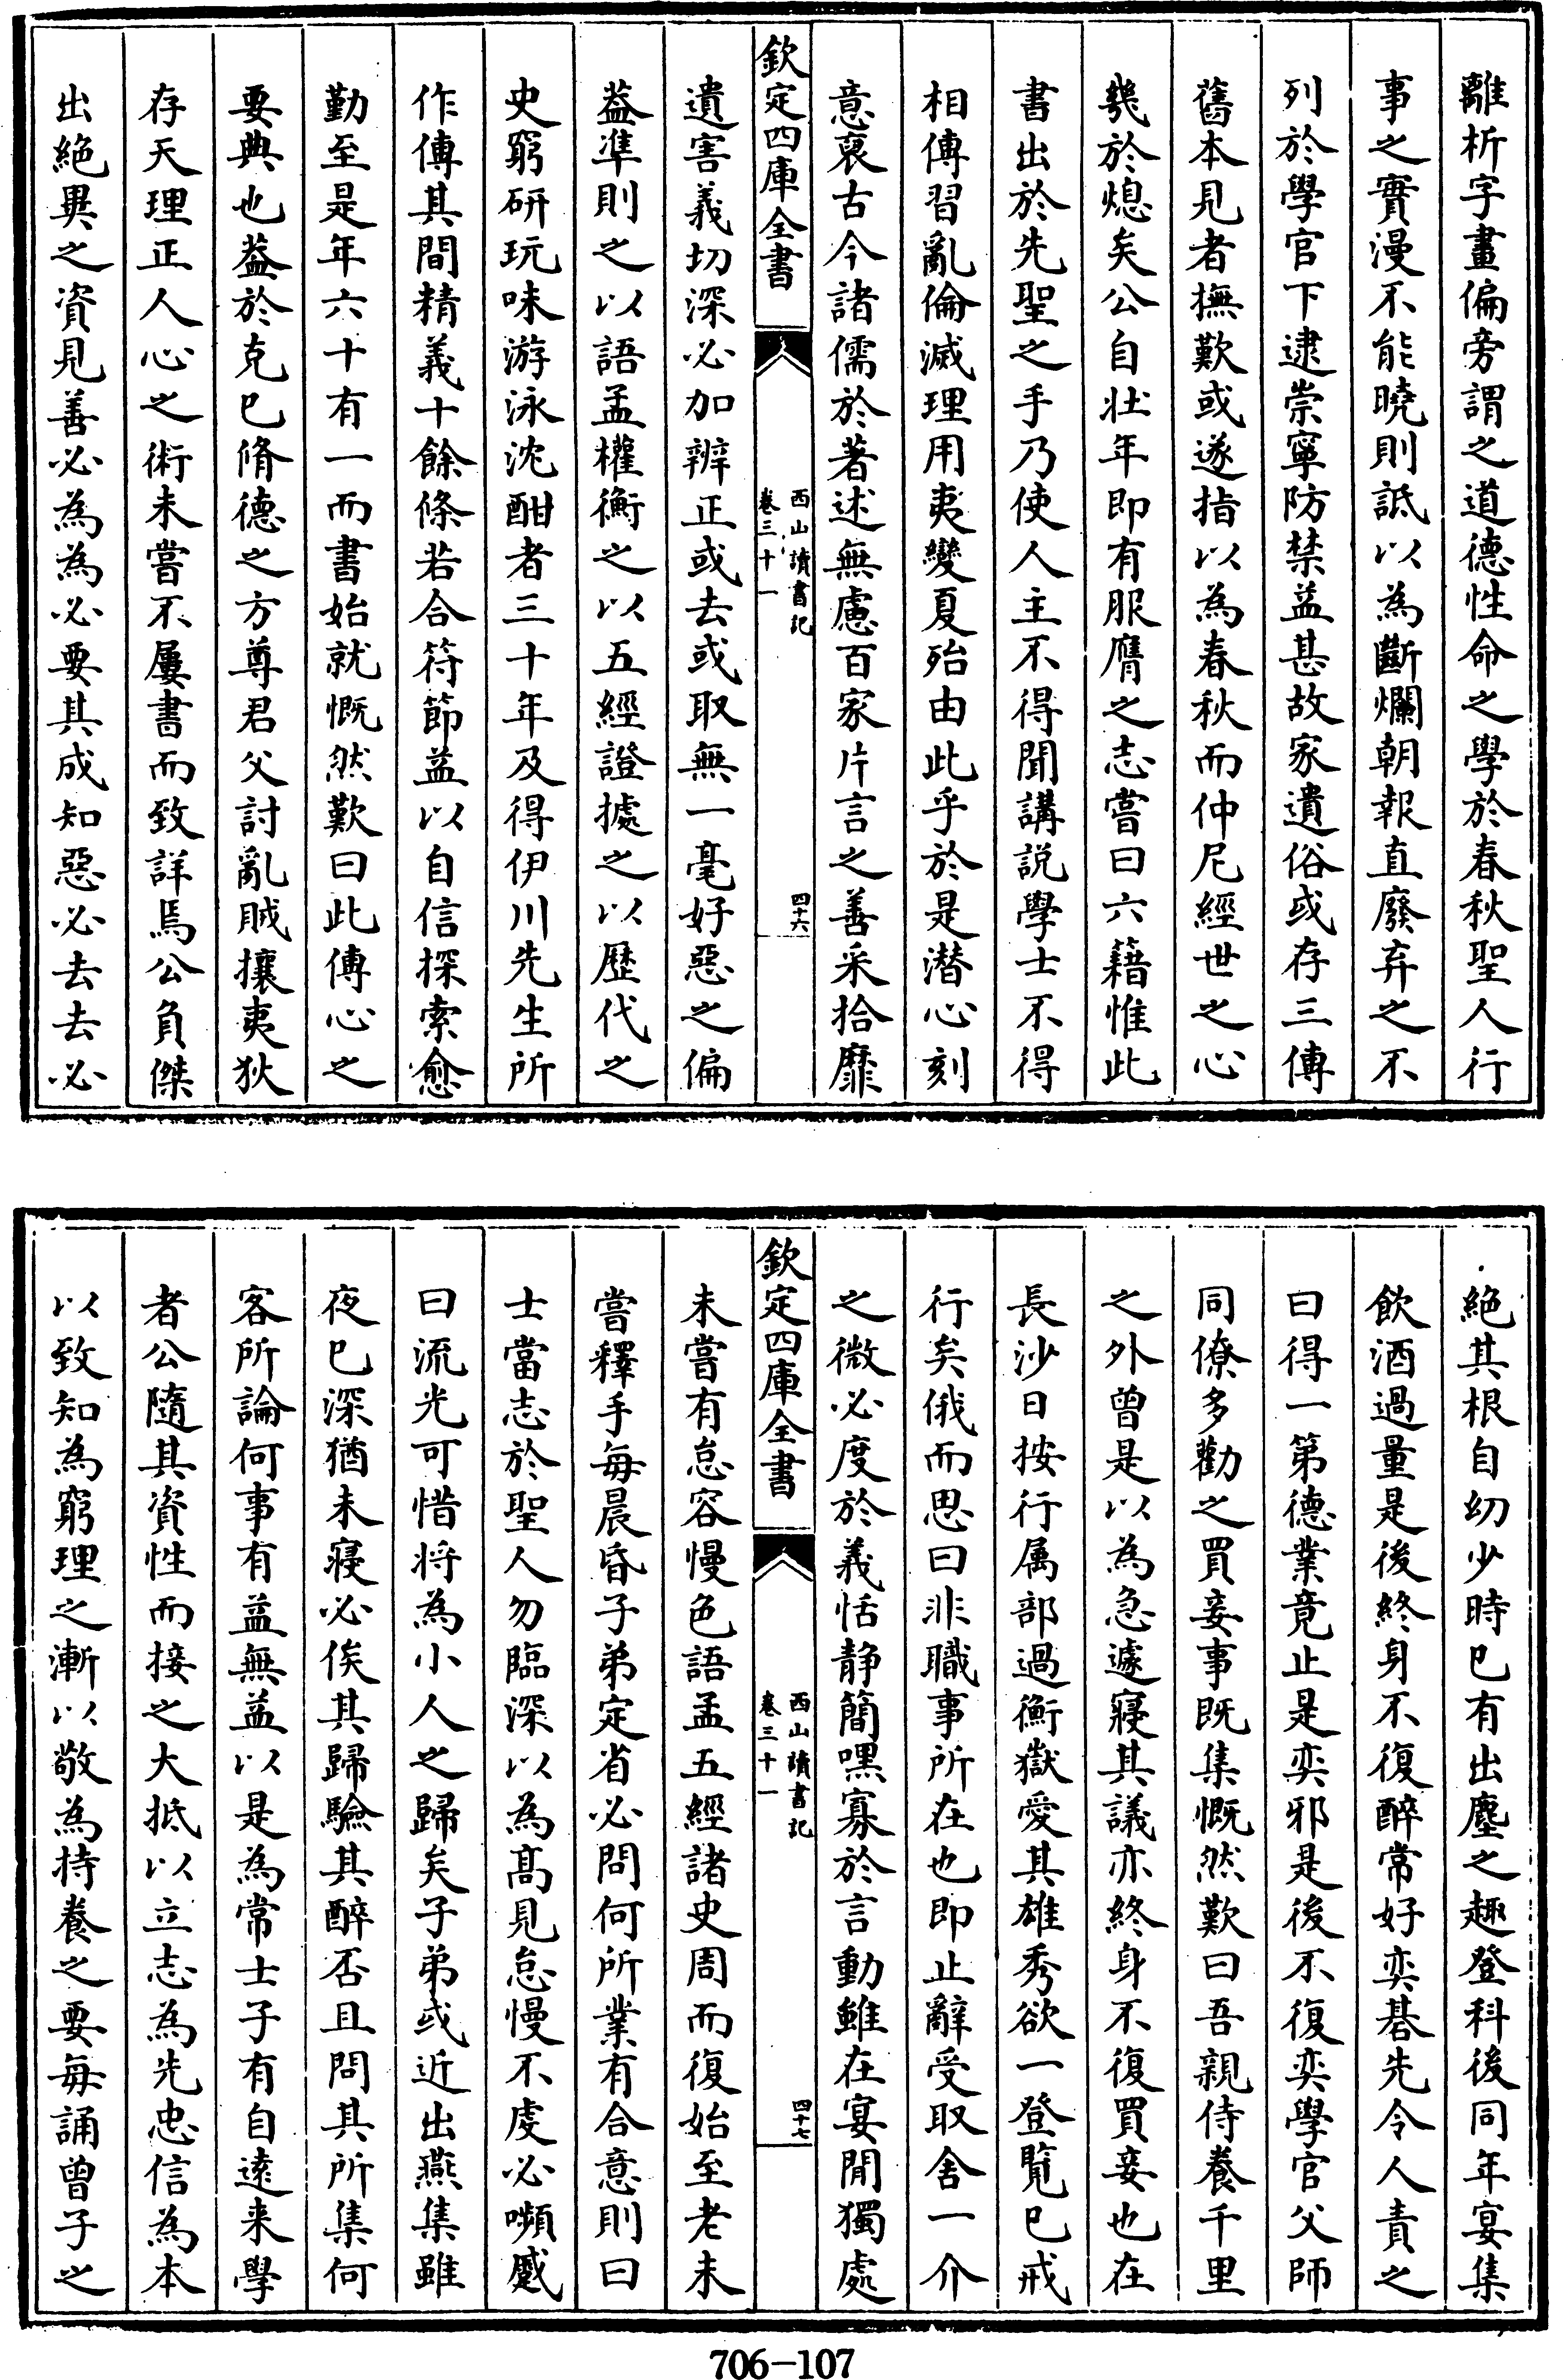 離析字畫偏旁謂之道德性命之學於春秋聖人行
事之實漫不能曉則詆以為斷爛朝報直廢弃之不
列於學官下逮崇寧防禁益甚故家遺俗或存三傳
舊本見者撫歎或遂指以為春秋而仲尼經世之心
幾於熄矣公自壮年即有服膺之志嘗曰六籍惟此
書出於先聖之手乃使人主不得聞講説學士不得
相傳習亂倫滅理用夷變夏殆由此乎於是潛心刻
意裒古今諸儒於著述無慮百家片言之善采拾靡
欽定四庫全書
西山讀書記
卷三十一
四十六
遺害義切深必加辨正或去或取無一毫好惡之偏
葢準則之以語孟權衡之以五經證㨿之以歴代之
史窮研玩味游泳沈酣者三十年及得伊川先生所
作傳其間精義十餘條若合符節益以自信探索愈
勤至是年六十有一而書始就慨然歎曰此傳心之
要典也葢於克已脩德之方尊君父討亂賊攘夷狄
存天理正人心之術未嘗不屢書而致詳焉公負傑
出絶異之資見善必為為必要其成知惡必去去必
絶其根自幼少時已有出塵之趣登科後同年宴集
飲酒過量是後終身不復醉常好奕碁先令人責之
曰得一第德業竟止是奕邪是後不復奕學官父師
同僚多勸之買妾事既集慨然歎曰吾親侍養千里
之外曾是以為急遽寢其議亦終身不復買妾也在
長沙日按行属部過衡嶽愛其雄秀欲一登覧已戒
行矣俄而思曰非職事所在也即止辭受取舍一介
之微必度於義恬静簡嘿寡於言動雖在宴閒獨處
欽定四庫全書
西山讀書記
卷三十一
四十七
未嘗有怠容慢色語孟五經諸史周而復始至老未
嘗釋手毎晨昏子弟定省必問何所業有合意則曰
士當志於聖人勿臨深以為髙見怠慢不虔必嚬蹙
曰流光可惜将為小人之歸矣子弟或近出燕集雖
夜已深猶未寝必俟其歸驗其醉否且問其所集何
客所論何事有益無益以是為常士子有自逺来學
者公隨其資性而接之大抵以立志為先忠信為本
以致知為窮理之漸以敬為持養之要毎誦曾子之
706-107